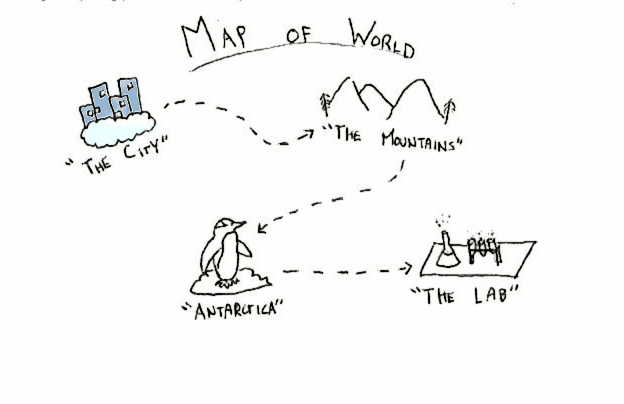 MAP OF WORLD
"THE CITY"
"THE MOUNTAINS"
"ANTARCTICA"
"THE LAB"